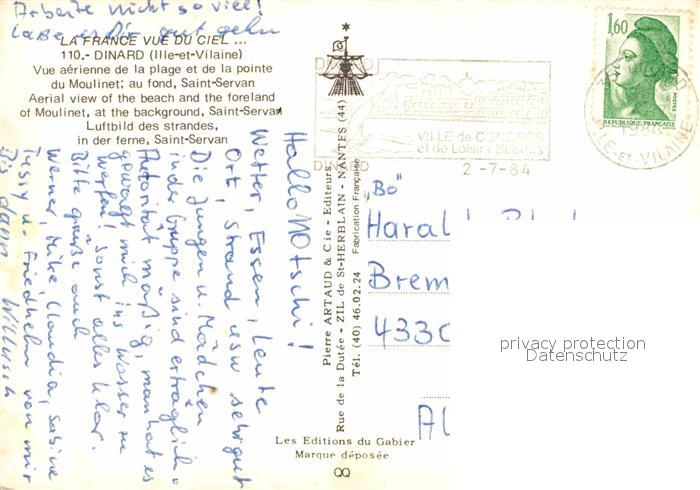 Arbeite nicht so viel!
Laße es Dir gut gehn
LA FRANCE VUE DU CIEL ...
110.- DINARD (Ille-et-Vilaine)
Vue aérienne de la plage et de la pointe
du Moulinet; au fond, Saint-Servan
Aerial view of the beach and the foreland
of Moulinet, at the background, Saint-Servan
Luftbild des strandes,
in der ferne, Saint-Servan
Hallo Motschi!
Wetter, Essen, Leute
Ort, Strand usw sehr gut
Die Jungen u. Mädchen
in der Gruppe sind erträglich.
Autorität mäßig, man hat es
gewagt mich ins Wasser zu
werfen! Sonst alles klar.
Bitte grüße auch
Werner, Mike, Claudia, Sabine
Tussy u. Friedhelm von mir
Bis dann
Pierre ARTAUD & Cie - Editeurs
Rue de la Dutée - ZIL de St-HERBLAIN - NANTES (44)
Tél. (40) 46.02.24 Fabrication Française
Les Editions du Gabier
Marque déposée
DINARD
VILLE de CONGRES
et de Loisirs Sportifs
DINARD
2-7-84
1,60
REPUBLIQUE FRANÇAISE
ILLE-ET-VILAINE
„Bö“
Harald
Brem
4330
privacy protection
Datenschutz